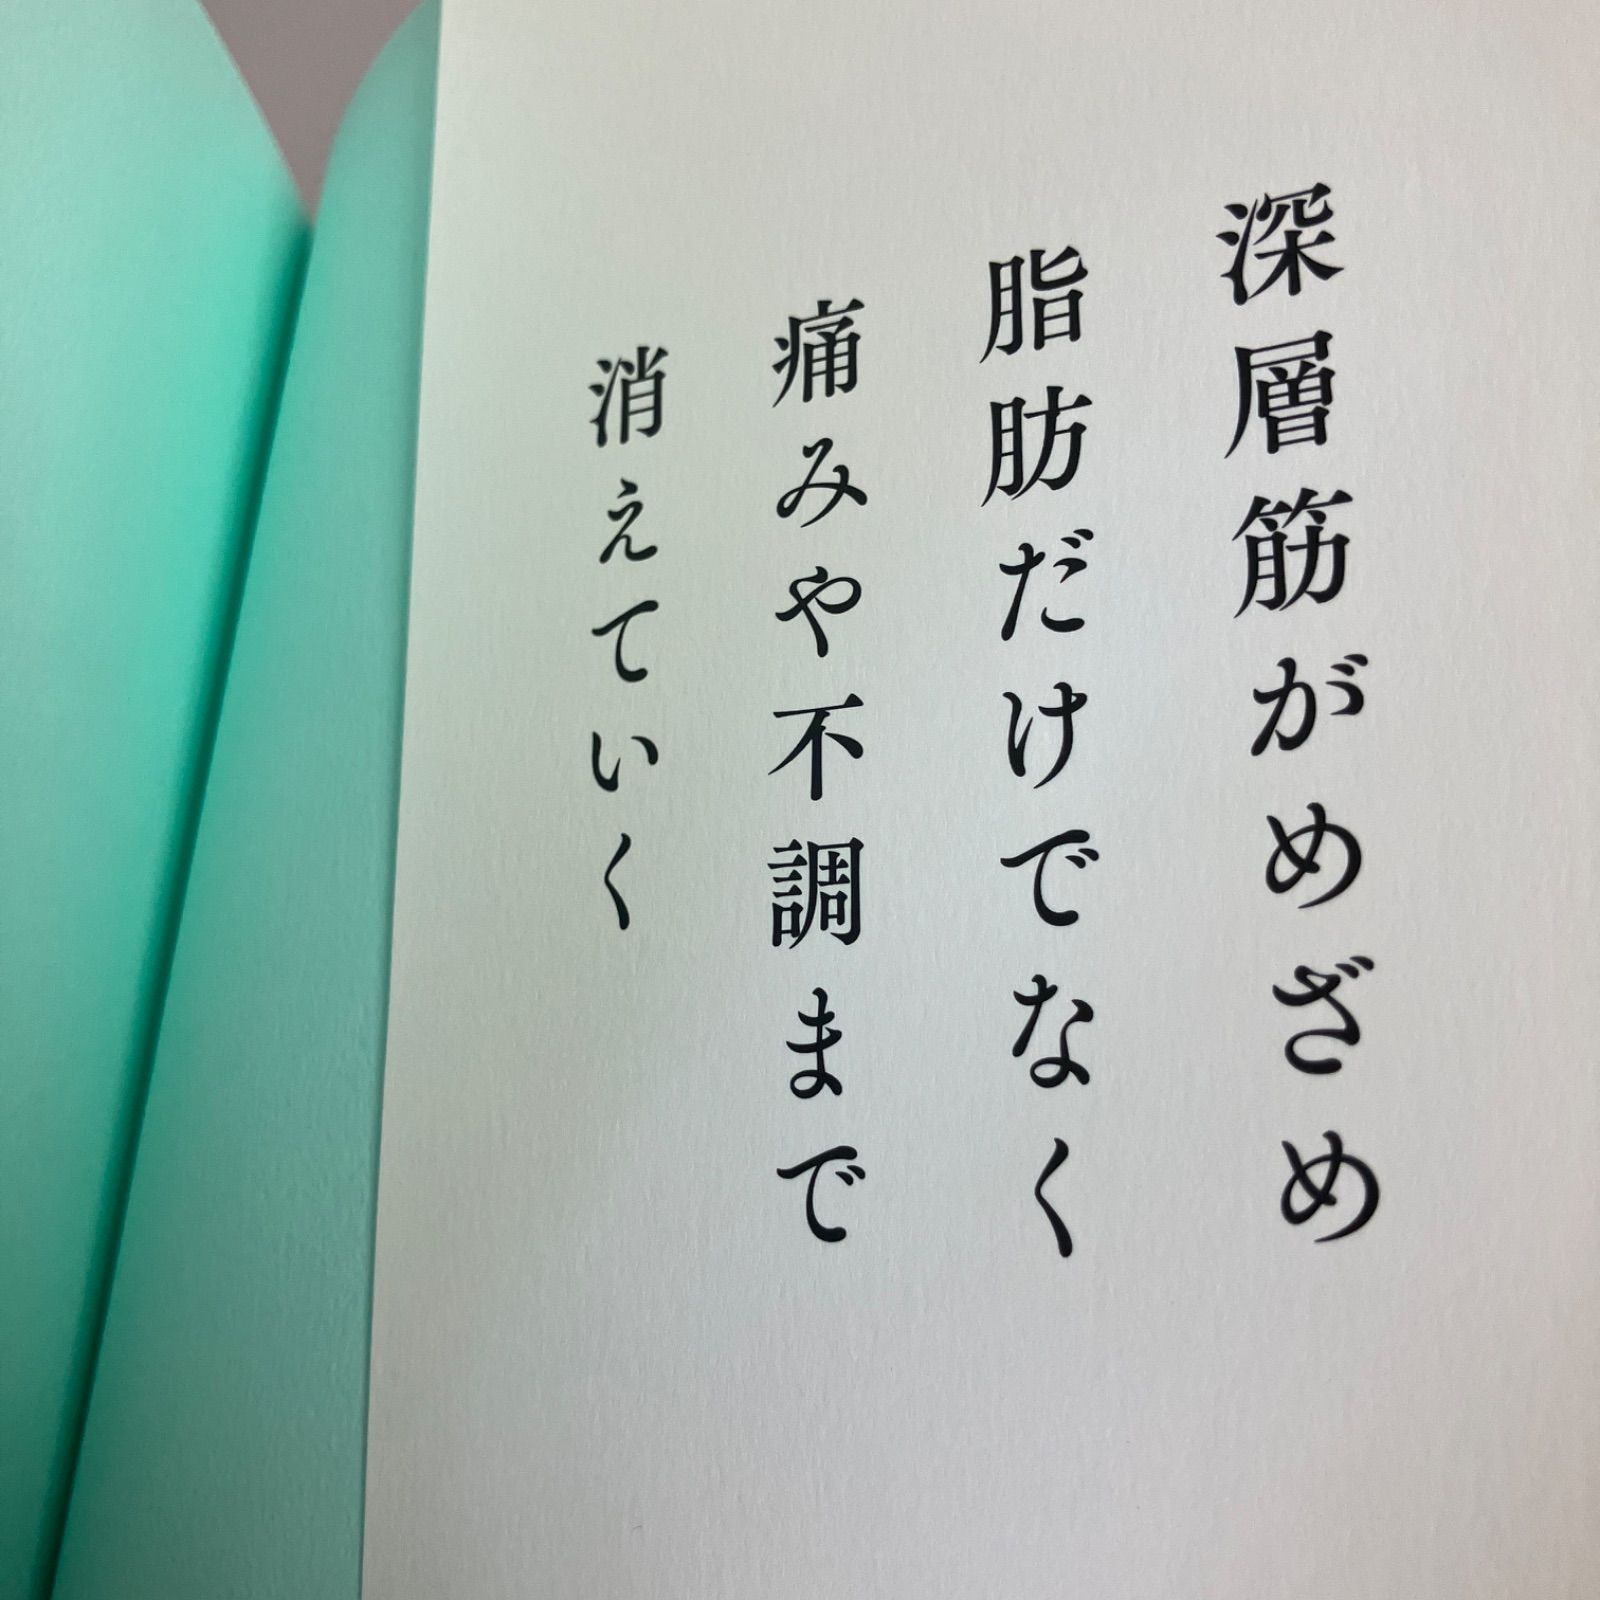 深層筋がめざめ
脂肪だけでなく
痛みや不調まで
消えていく